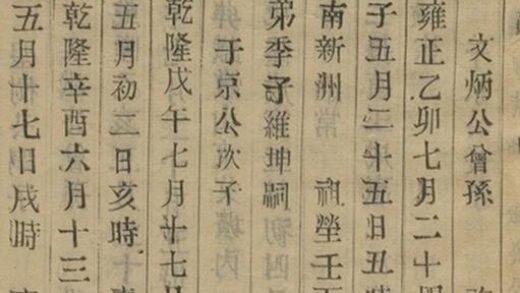 文炳公曾孫
雍正乙卯七月二十四
子五月二十五日丑時
南新洲 祔塋壬
弟季子維坤嗣
于京公次子
乾隆戊午七月廿七日
五月初二日亥時
乾隆辛酉六月十三
五月十七日戌時